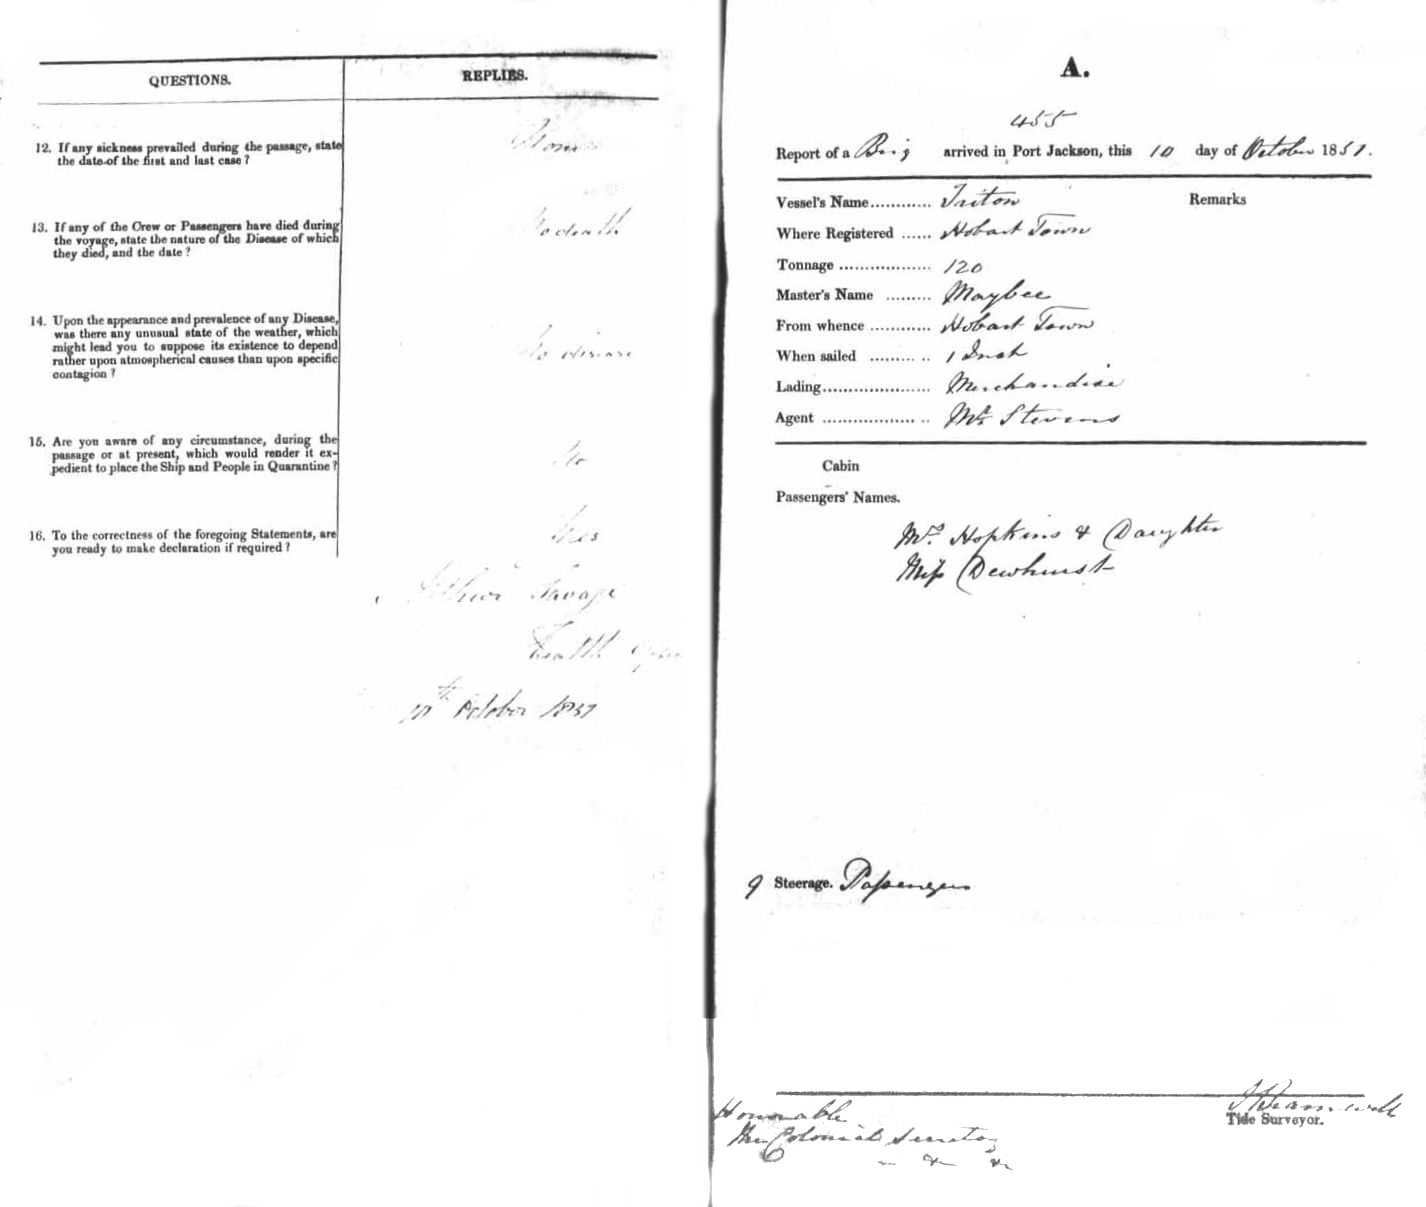 QUESTIONS.
REPLIES.
12. If any sickness prevailed during the passage, state
the date of the first and last case ?
None
13. If any of the Crew or Passengers have died during
the voyage, state the nature of the Disease of which
they died, and the date ?
No death
14. Upon the appearance and prevalence of any Disease,
was there any unusual state of the weather, which
might lead you to suppose its existence to depend
rather upon atmospherical causes than upon specific
contagion ?
No disease
15. Are you aware of any circumstance, during the
passage or at present, which would render it ex-
pedient to place the Ship and People in Quarantine ?
No
16. To the correctness of the foregoing Statements, are
you ready to make declaration if required ?
Yes
Arthur Savage
Health
10th October 1851
A.
455
Report of a Brig arrived in Port Jackson, this 10 day of October 1851.
Vessel's Name............ Triton
Remarks
Where Registered ...... Hobart Town
Tonnage .................. 120
Master's Name ......... Maybee
From whence ............ Hobart Town
When sailed ............ 1 Inst
Lading..................... Merchandise
Agent ..................... Mr Stevens
Cabin
Passengers' Names.
Mrs Hopkins & Daughter
Miss Dewhurst
9 Steerage. Passengers
Tide Surveyor.
Honorable
The Colonial Secretary
- & &